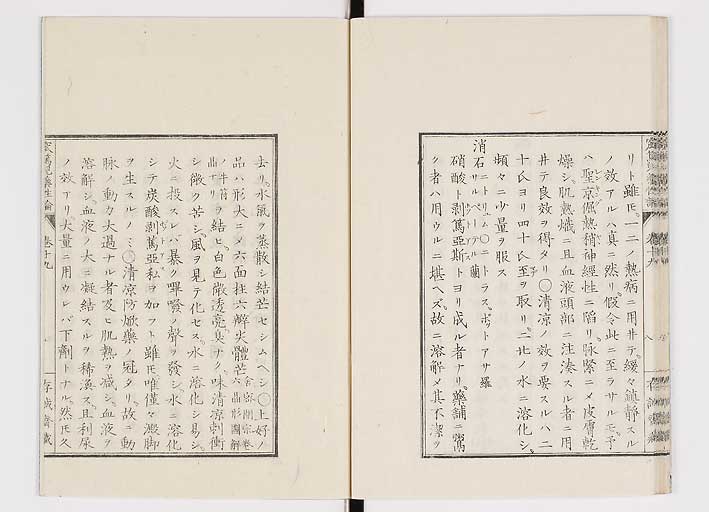 リト雖𪜈一二ノ熱病ニ用井テ緩々鎮静スル
ノ效アルハ真ニ然リ假令此ニ至ラサルモ予
ハ聖京偑熱稍神經性ニ陷リ脉緊ニメ皮膚乾
燥シ肌熱熾ニ且血液頭部ニ注湊スル者ニ用
井テ良效ヲ得タリ〇清凉ノ效ヲ要スルハ二
十氐ヨリ四十氐至ヲ取リ二北ノ水ニ溶化シ
頻々ニ少量ヲ服ス
消石 ニトリュム〇ニトラス、ポットアサ羅
サルペートル蘭
硝酸ト剥篤亞斯トヨリ成ル者ナリ藥舗ニ鬻
ク者ハ用ウルニ堪ヘズ故ニ溶解メ其不潔ヲ
去リ水氣ヲ蒸散シ結芒セシムヘシ〇上好ノ
品ハ形大ニメ六面柱六觧尖體芒
ノ牛蒡ヲ結ヒ白色微透亮臭ナク味清凉刺衝
シ微ク苦シ風ヲ見テ化セス水ニ溶化シ易シ
火ニ投スレバ暴ク嗶嘐ノ聲ヲ發シ水ニ溶化
シテ炭酸剥篤亞私ヲ加フト雖𪜈唯僅々澱脚
ヲ生スルノミ〇清凉防焮藥ノ冠タリ故ニ動
脉ノ動力大過ナル者及ヒ肌熱ヲ减シ血液ヲ
溶解シ血液ノ大ニ凝結スルヲ稀漢ス且利尿
ノ效アリ大量ニ用ウレバ下劑トナル然𪜈久
卷十九
存誠齋藏